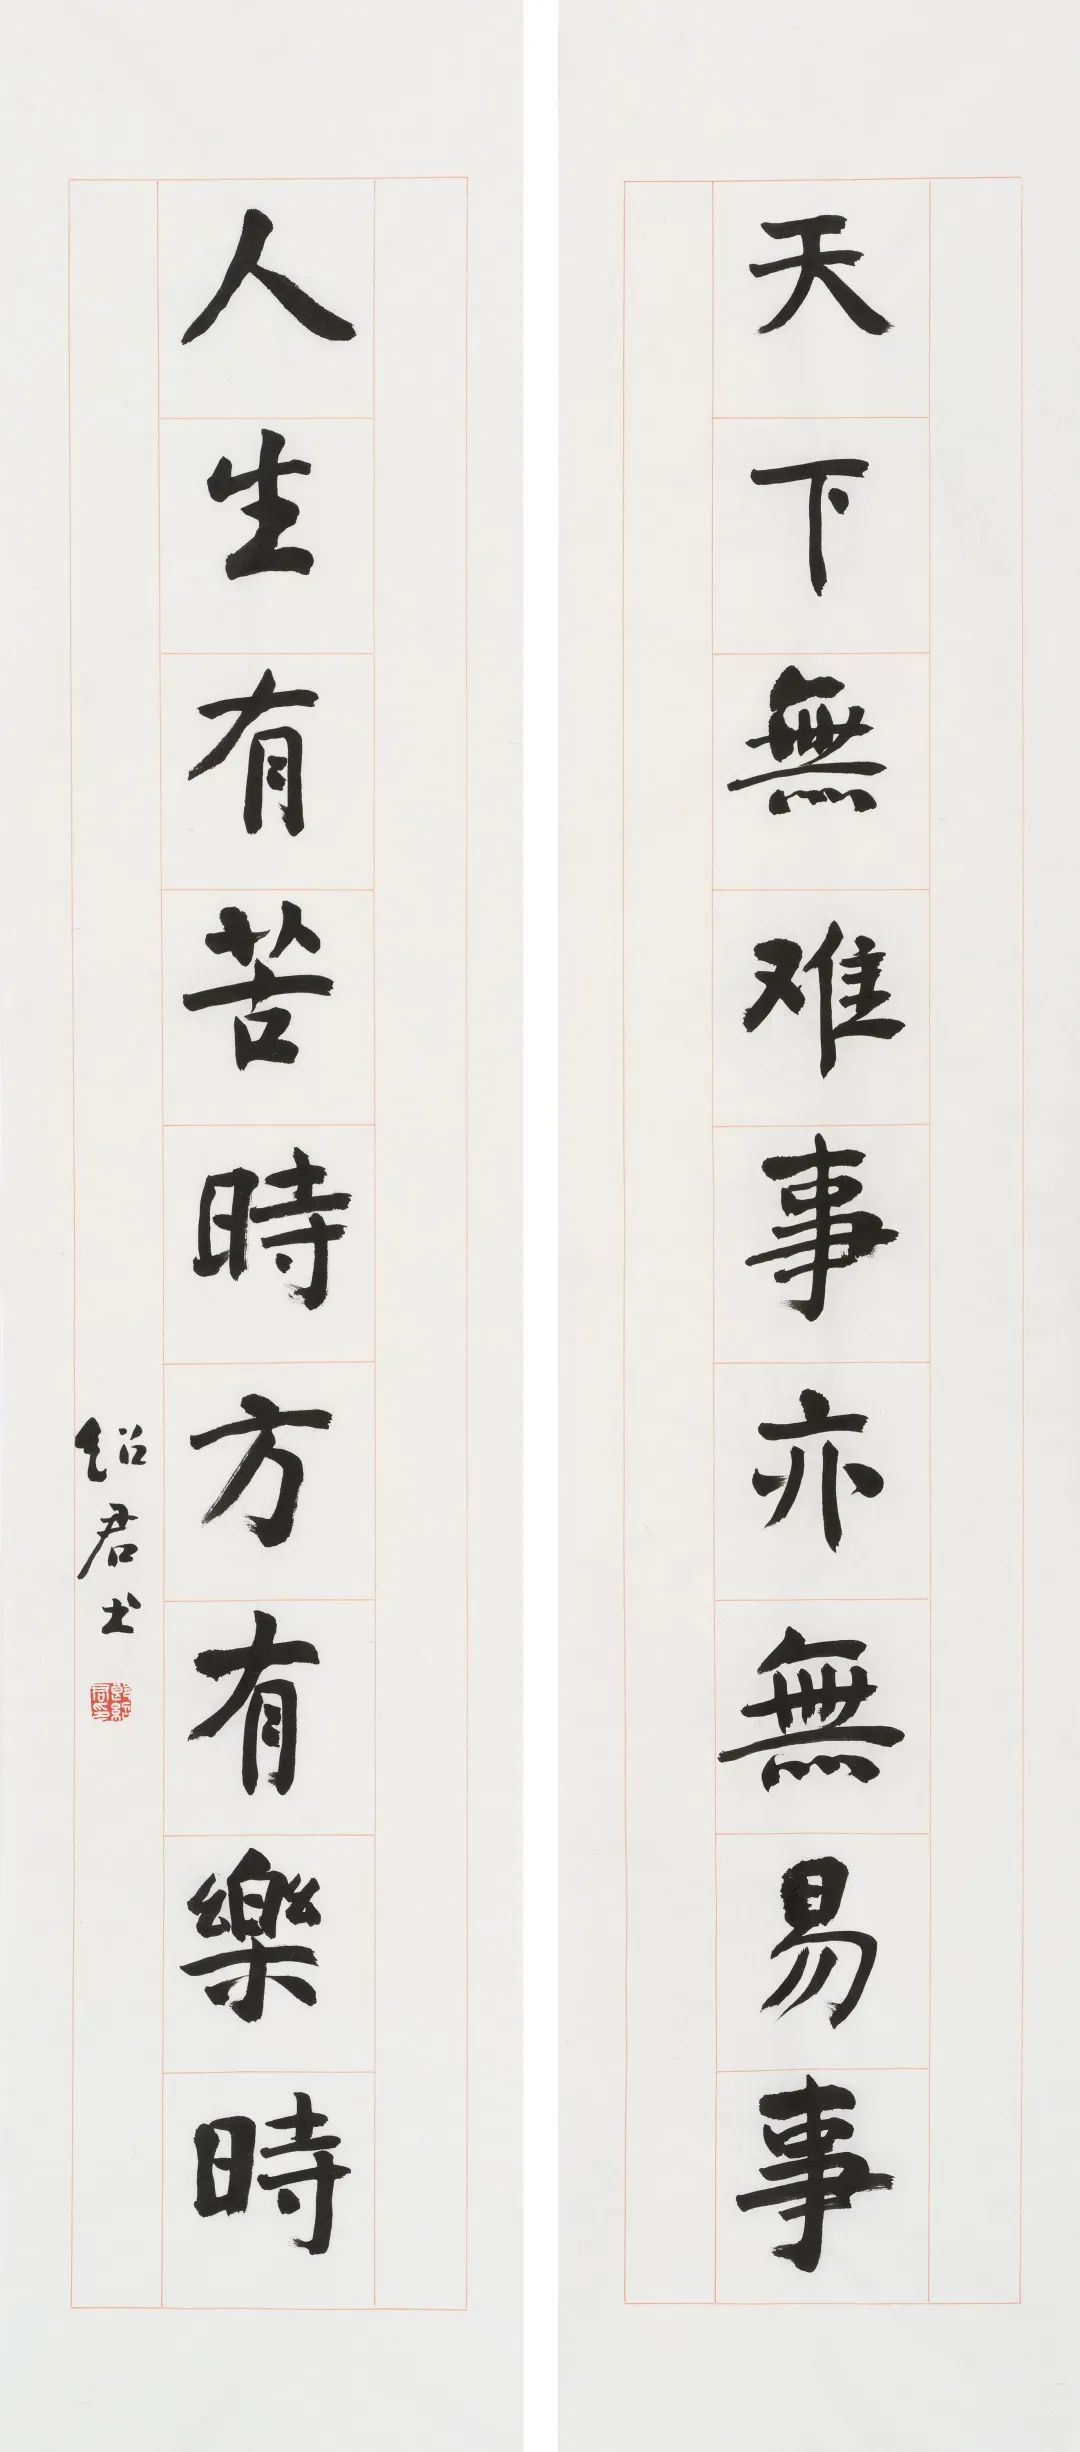 天下無难事亦無易事
人生有苦時方有樂時
绍君书